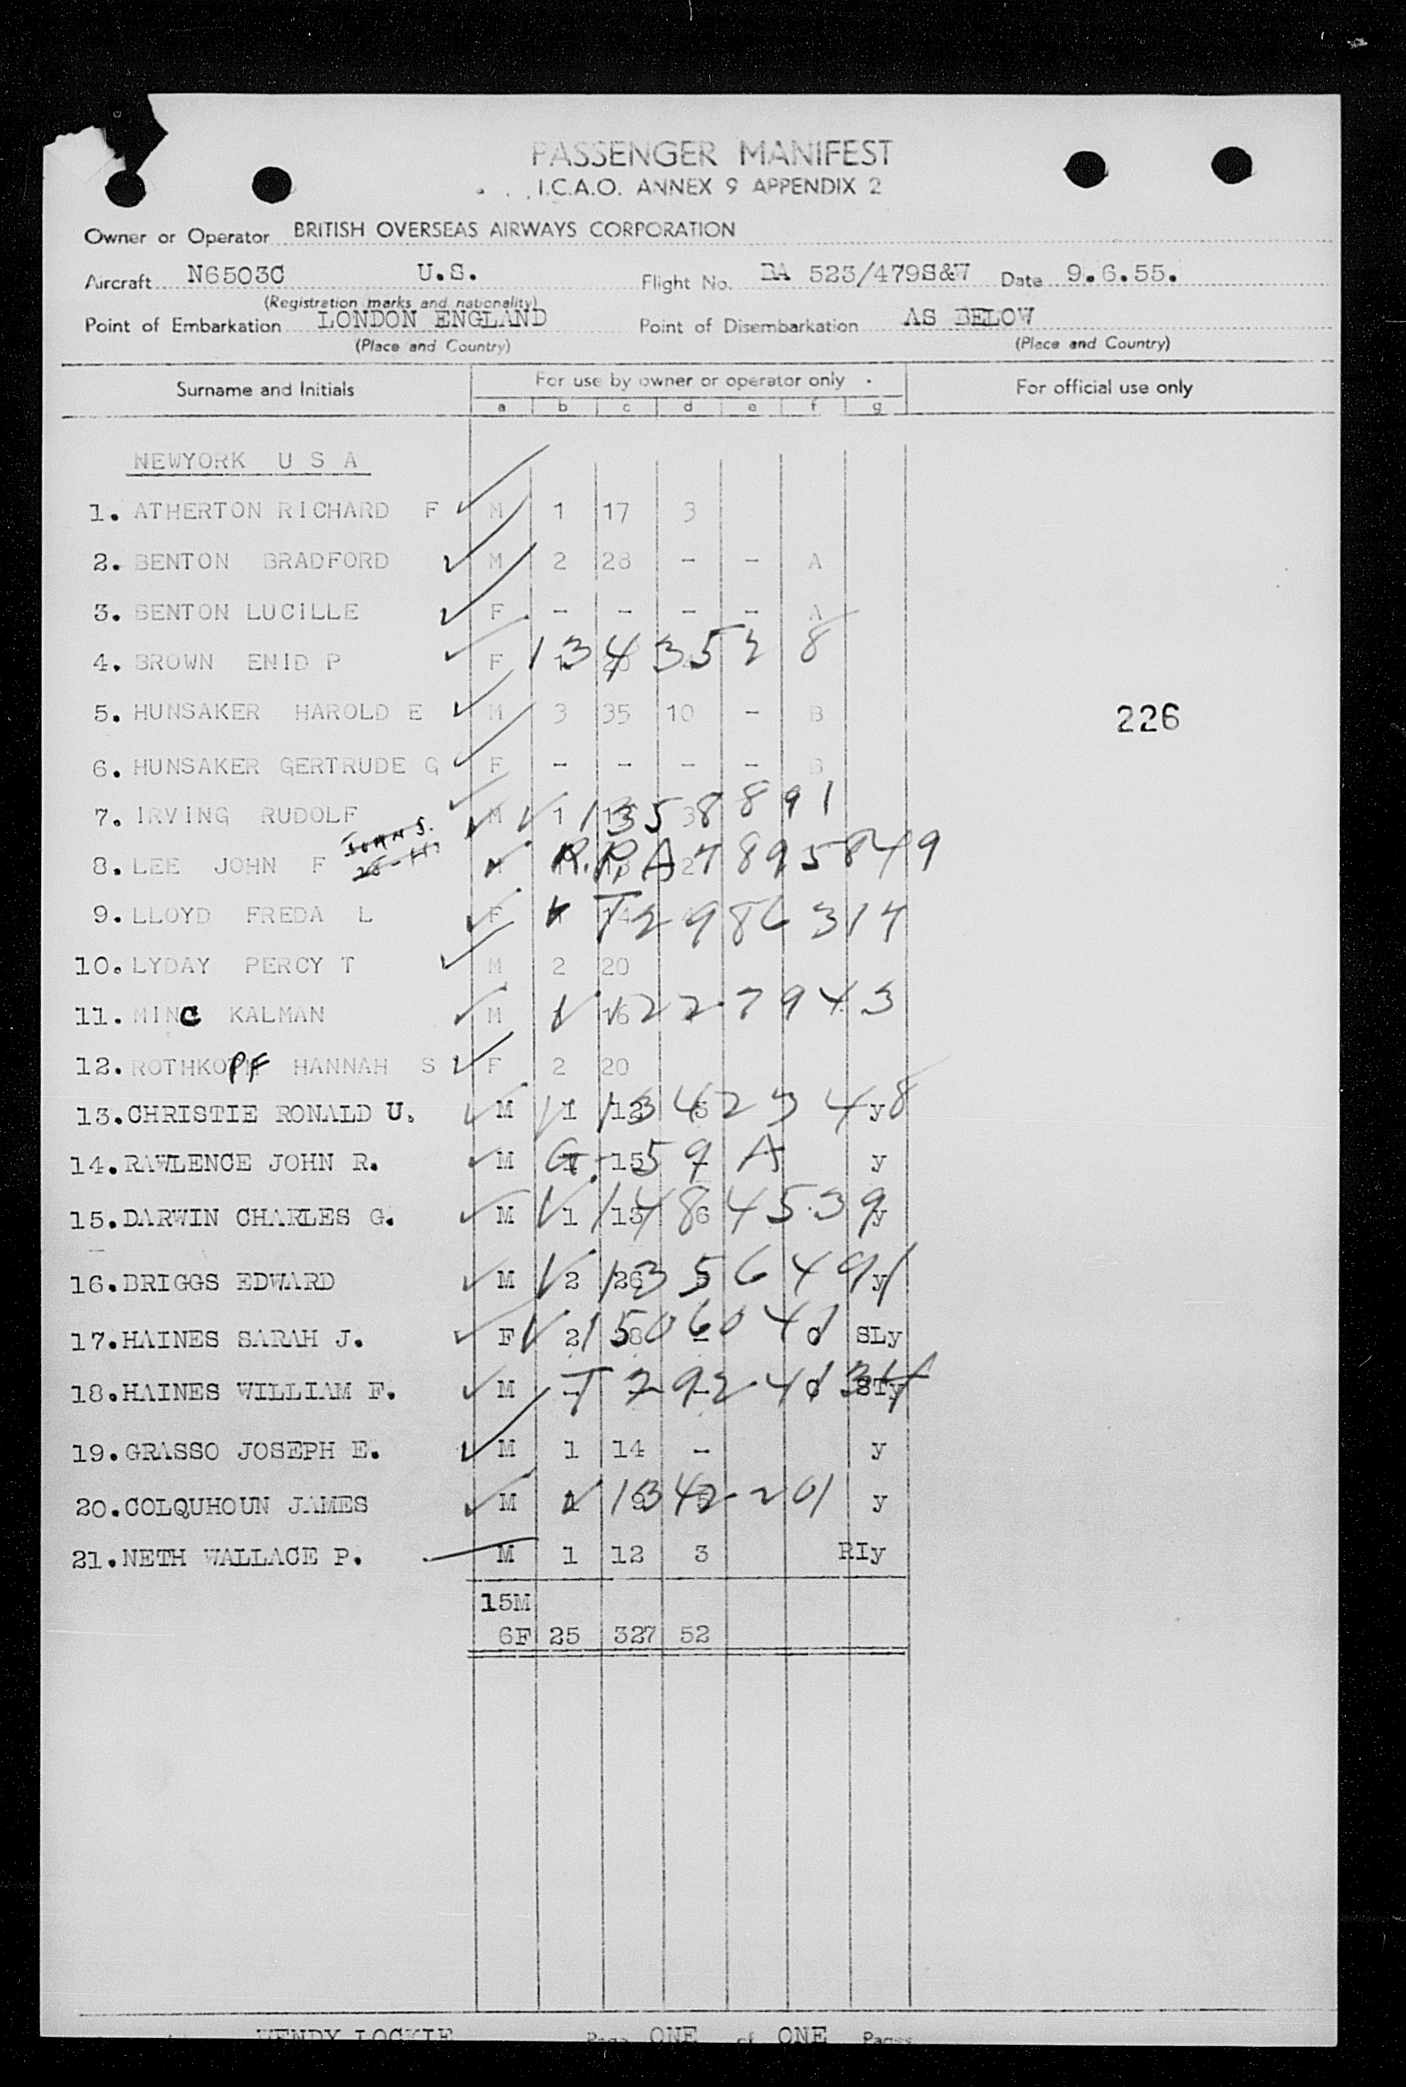 PASSENGER MANIFEST
I.C.A.O. ANNEX 9 APPENDIX 2
Owner or Operator BRITISH OVERSEAS AIRWAYS CORPORATION
Aircraft N6503C U.S. Flight No. BA 523/479S&W Date 9.6.55.
(Registration marks and nationality)
Point of Embarkation LONDON ENGLAND Point of Disembarkation AS BELOW
(Place and Country) (Place and Country)
Surname and Initials For use by owner or operator only For official use only
a b c d e f g
NEWYORK U S A
1. ATHERTON RICHARD F M 1 17 3
2. BENTON BRADFORD M 2 28 - - A
3. BENTON LUCILLE F - - - - A
4. BROWN ENID P F 1343528
5. HUNSAKER HAROLD E M 3 35 10 - B
226
6. HUNSAKER GERTRUDE G F - - - - B
7. IRVING RUDOLF M 1 1358891
8. LEE JOHN F R.P.A 7895849
9. LLOYD FREDA L F T2986314
10. LYDAY PERCY T M 2 20
11. MINC KALMAN M 16 1227943
12. ROTHKOPF HANNAH S F 2 20
13. CHRISTIE RONALD U. M 1 12 1342348 y
14. RAWLENCE JOHN R. M 15 G-59A y
15. DARWIN CHARLES G. M 1 6 1484539 y
16. BRIGGS EDWARD M 2 26 1356491 y
17. HAINES SARAH J. F 2 1506041 C SLy
18. HAINES WILLIAM F. M - T 29241 C STy
19. GRASSO JOSEPH E. M 1 14 - y
20. COLQUHOUN JAMES M 1342201 y
21. NETH WALLACE P. M 1 12 3 RIy
15M
6F 25 327 52
WENDY LOCKIE Page ONE of ONE Pages